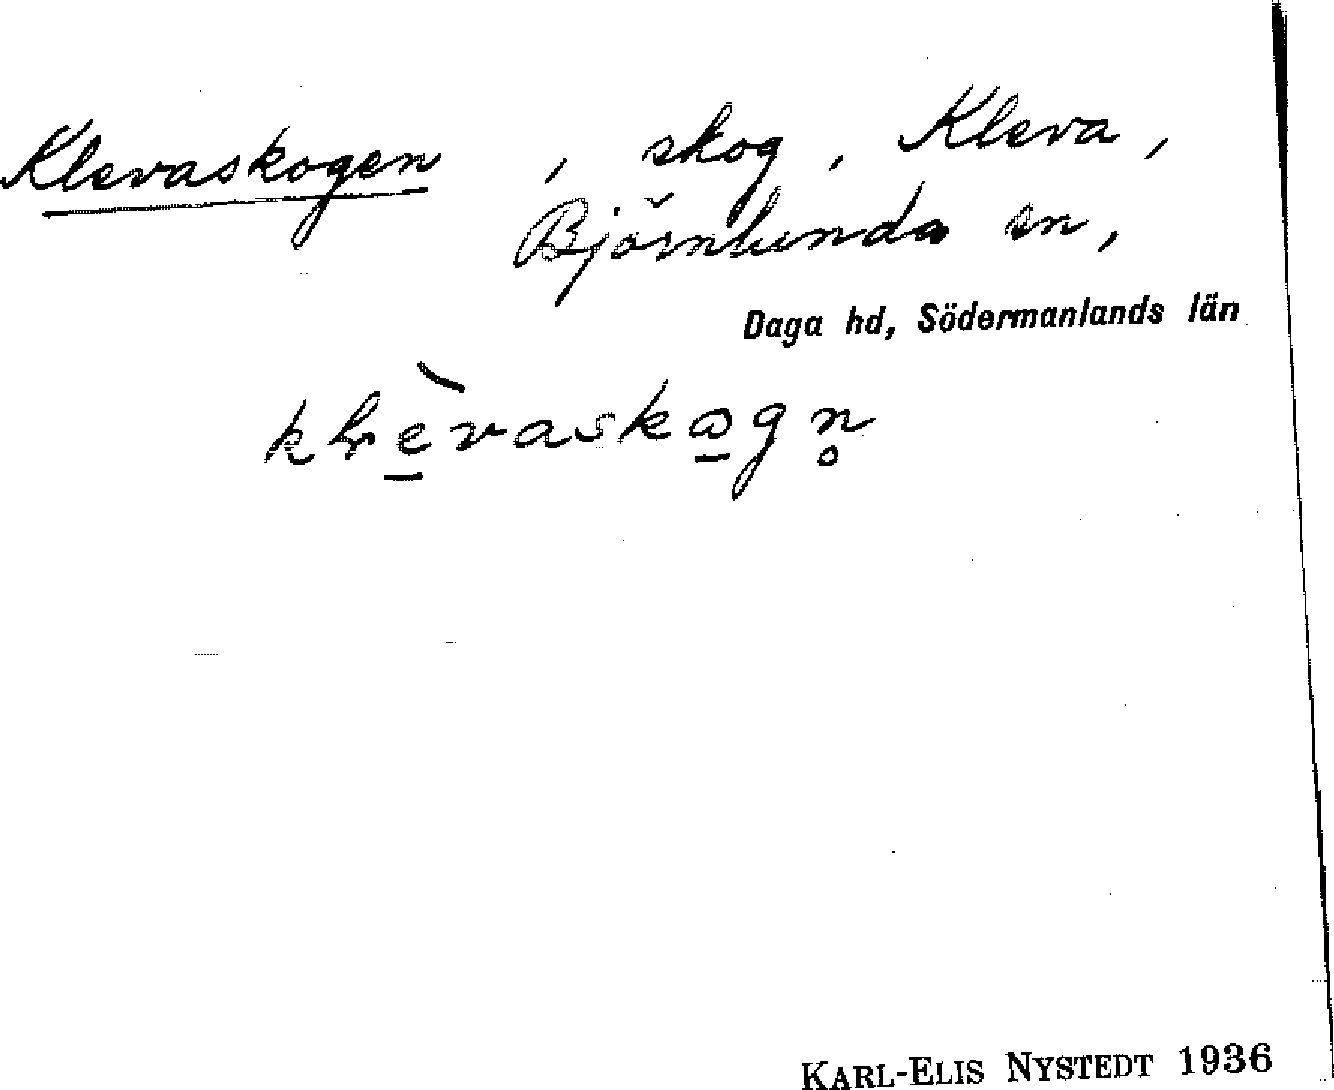 Klevaskogen, skog, Kleva,
Björnlunda sn,
Daga hd, Södermanlands län
klèvaskogn̥
KARL-ELIS NYSTEDT 1936